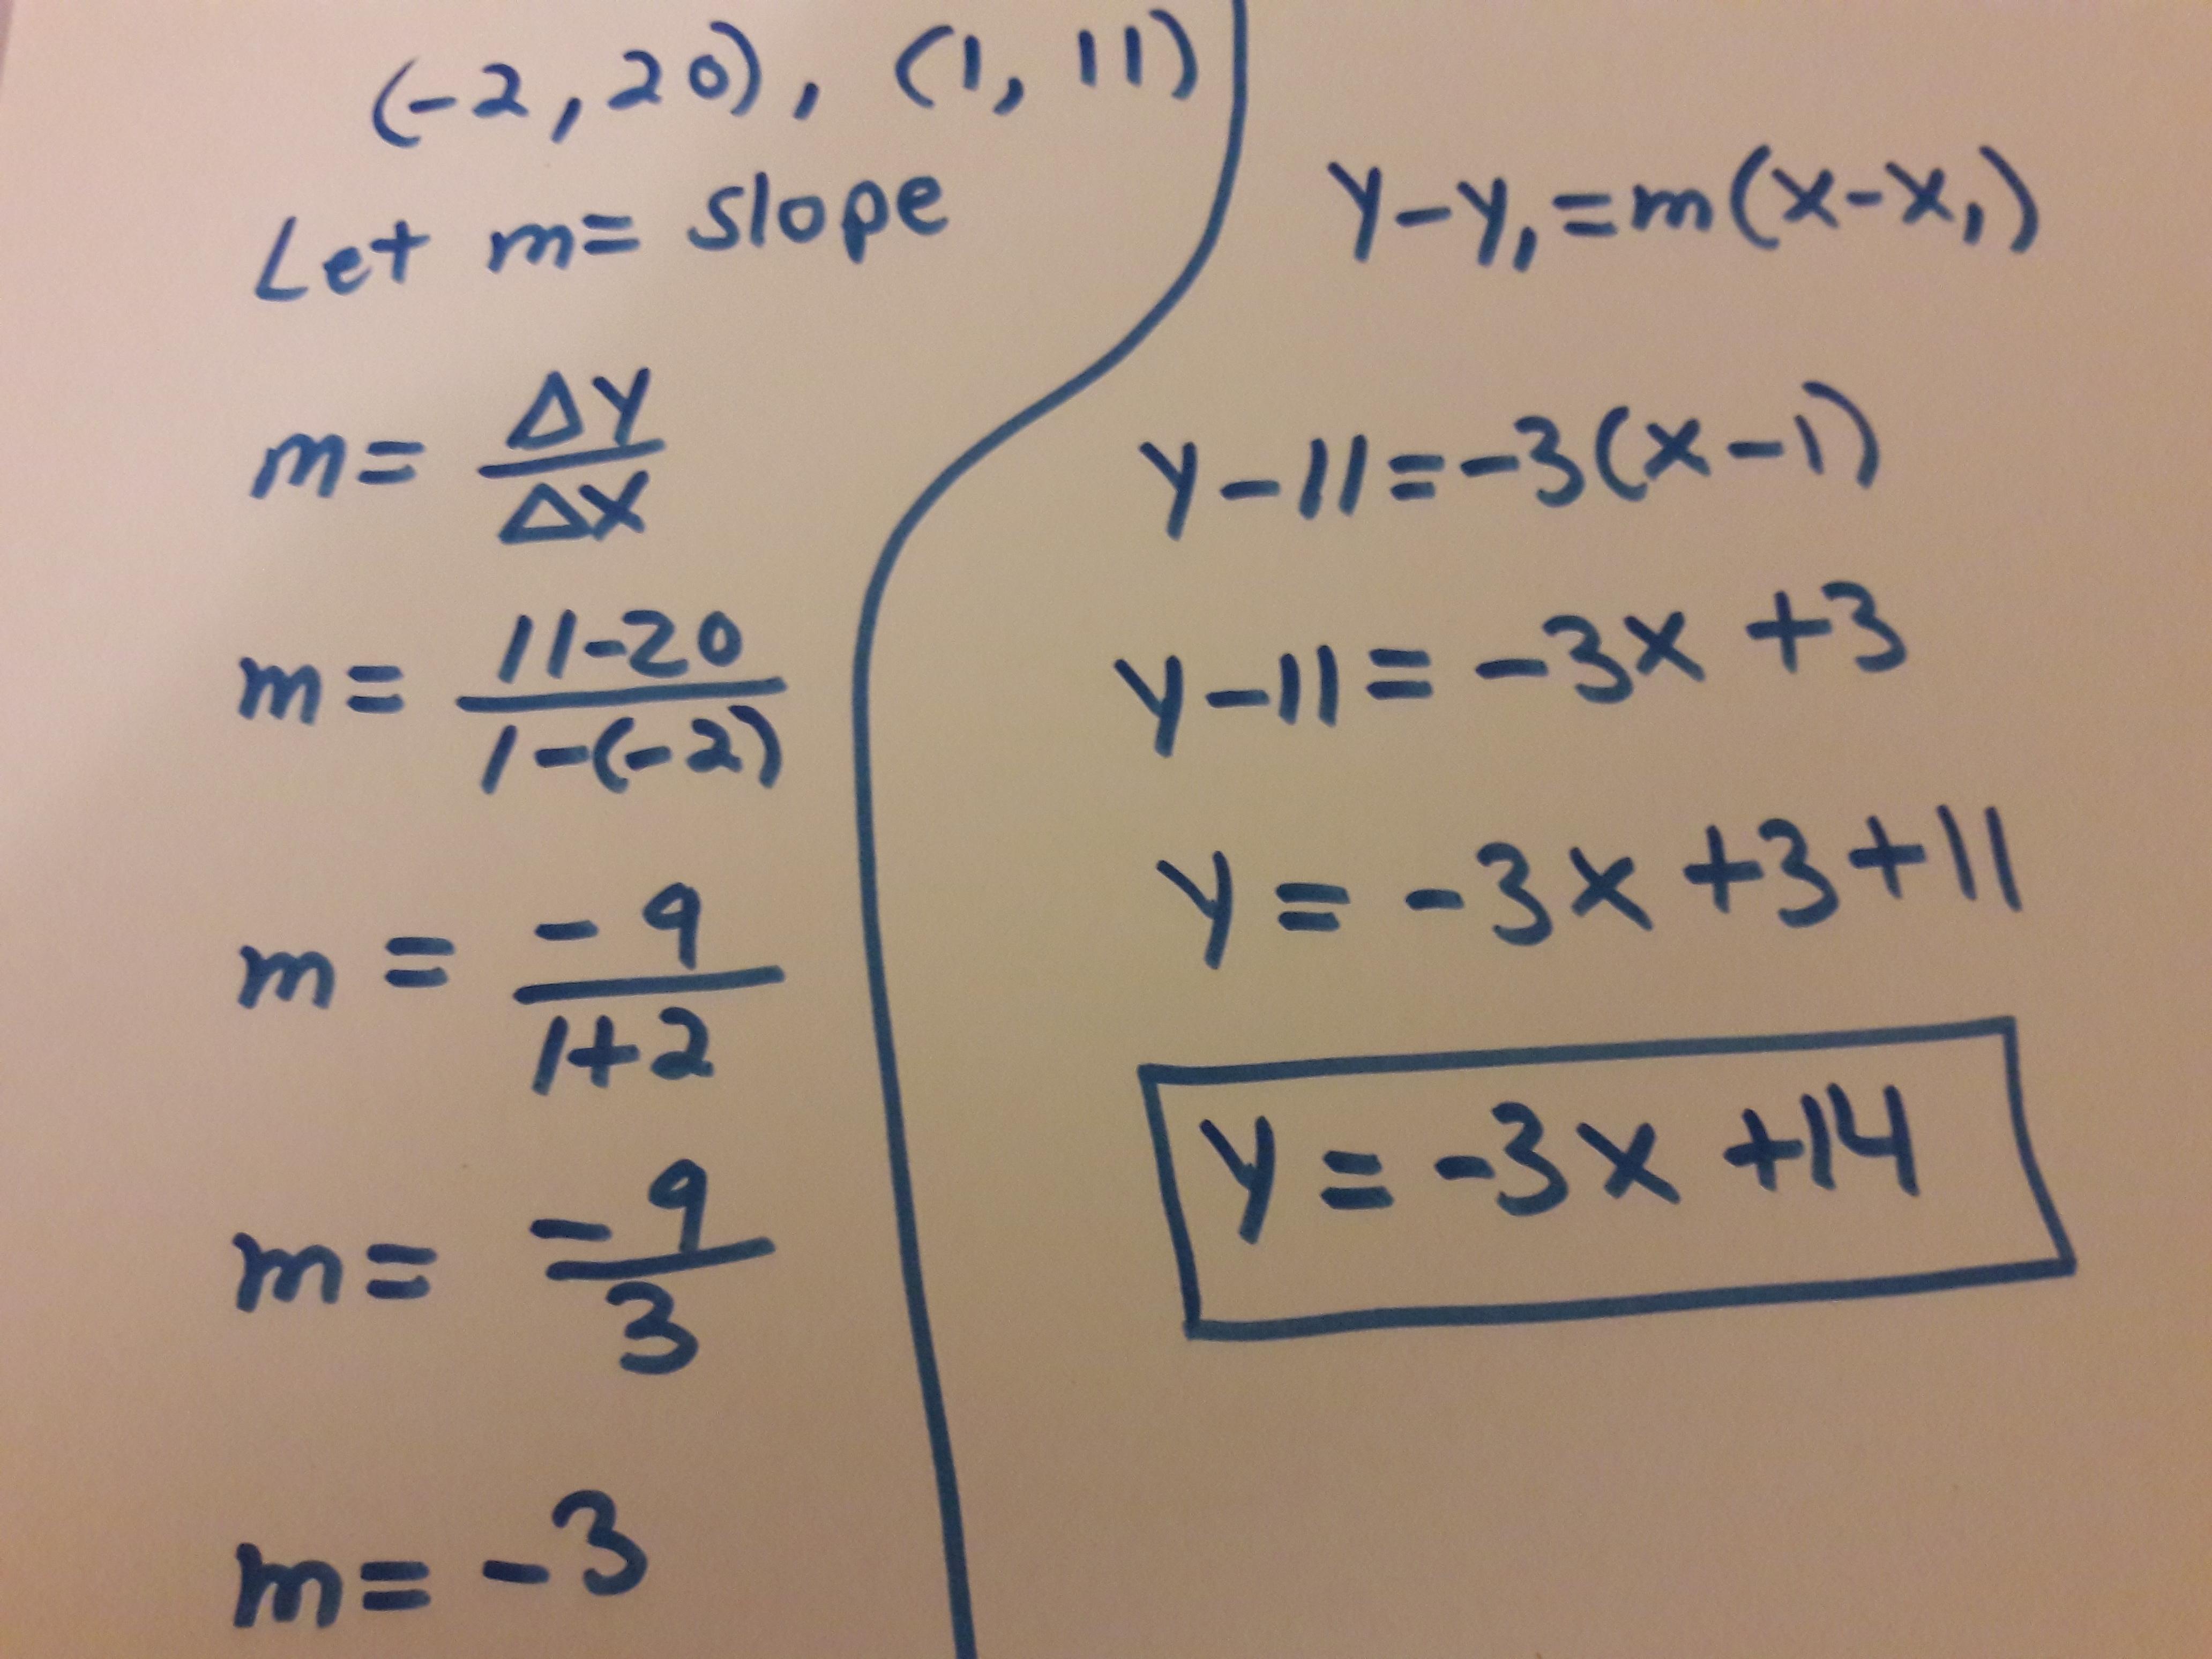 (-2, 20), (1, 11)
Let m= slope
m= ΔY/ΔX
m= 11-20/1-(-2)
m = -9/1+2
m= -9/3
m= -3
Y-Y₁=m(x-x₁)
y-11=-3(x-1)
y-11= -3x +3
y = -3x +3+11
y = -3x +14